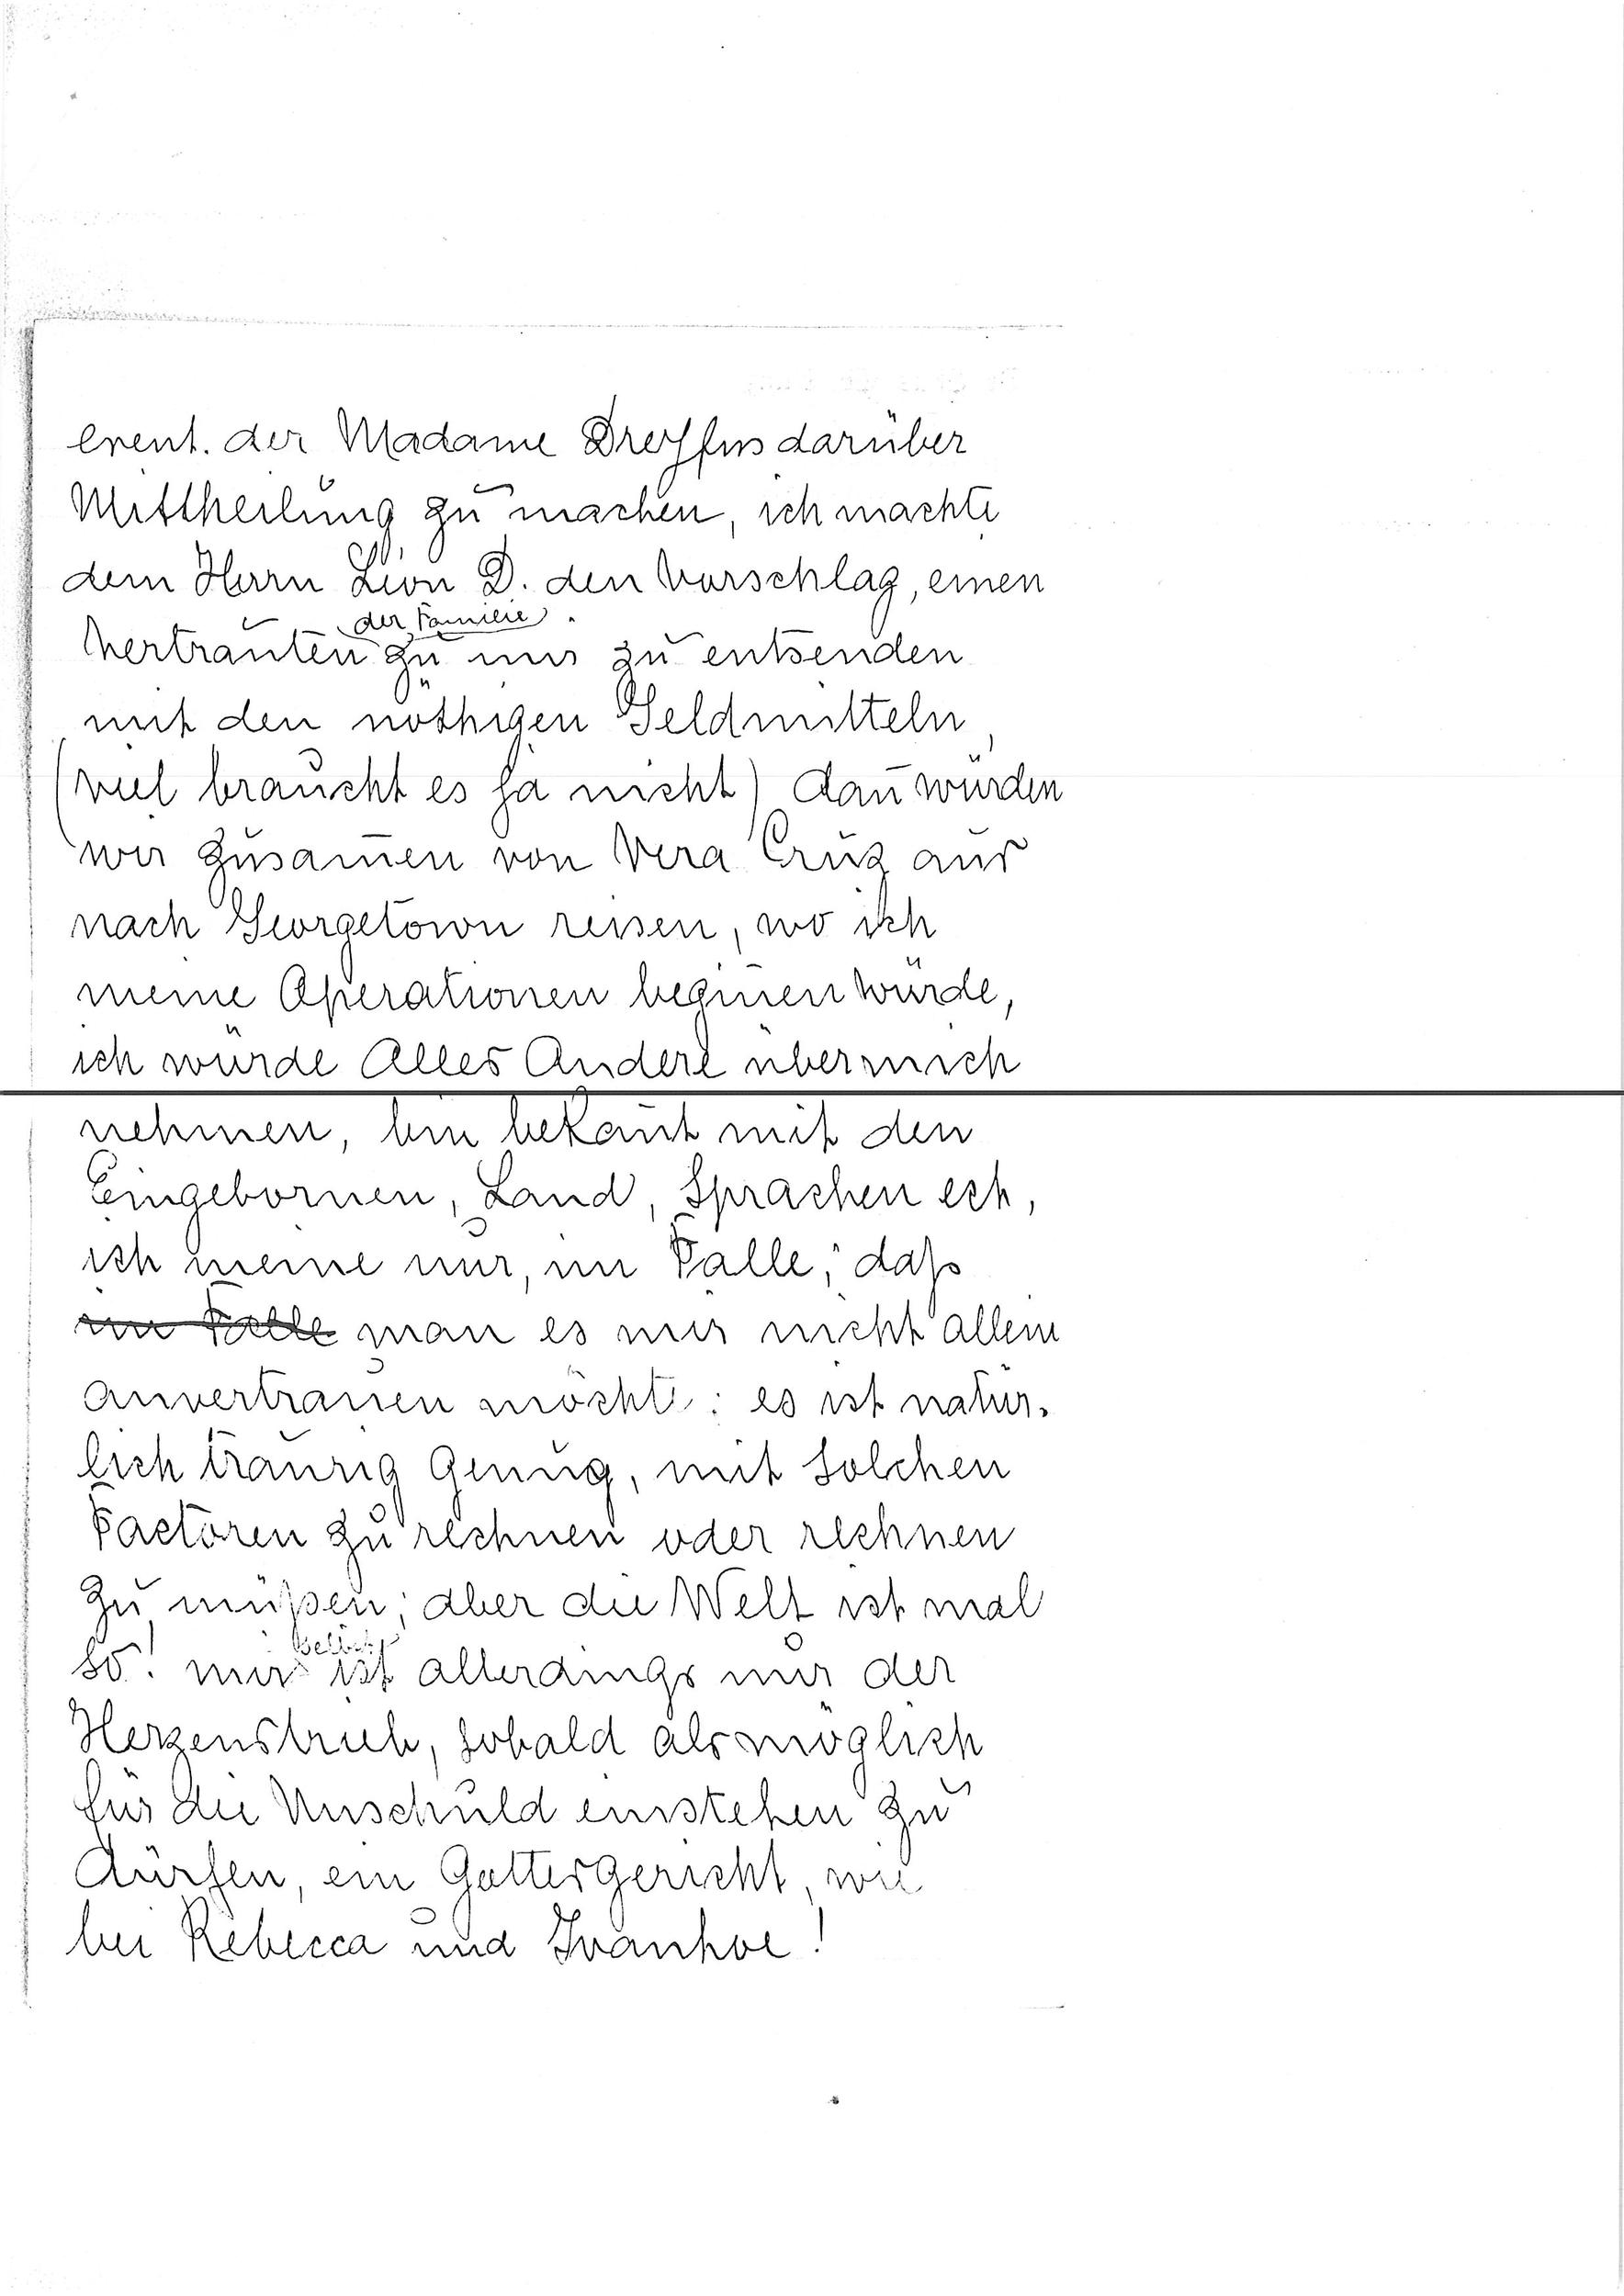 event. der Madame Dreyfus darüber
Mittheilung zu machen, ich machte
dem Herrn Léon D. den Vorschlag, einen
der Familie
Vertrauten zu uns zu entsenden
mit den nöthigen Geldmitteln
(viel braucht es ja nicht) dan̄ würden
wir zusam̄en von Vera Cruz aus
nach Georgetown reisen, wo ich
meine Operationen begin̄en würde,
ich würde Alles Andere über mich
nehmen, bin bekan̄t mit den
Eingebornen, Land, Sprachen ect,
ich meine nur, im Falle, daß
im Falle man es mir nicht allein
anvertrauen möchte: es ist natür-
lich traurig genug, mit solchen
Factoren zu rechnen oder rechnen
zu müßen; aber die Welt ist mal
selbst
so! mir ist allerdings nur der
Herzenstrieb, sobald als möglich
für die Unschuld einstehen zu
dürfen, ein Gottesgericht, wie
bei Rebecca und Ivanhoe!